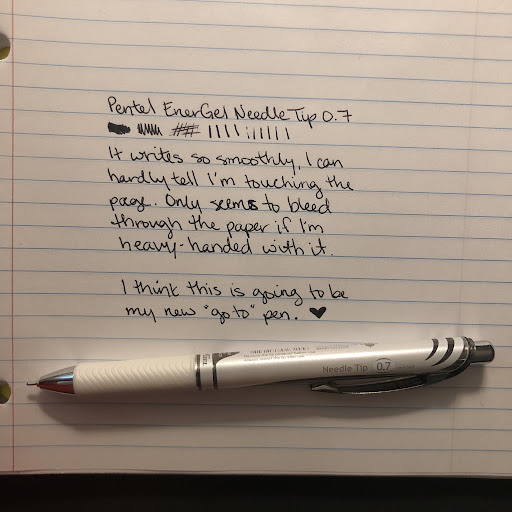 Pentel EnerGel Needle Tip 0.7
It writes so smoothly, I can
hardly tell I'm touching the
page. Only seems to bleed
through the paper if I'm
heavy-handed with it.
I think this is going to be
my new "go to" pen. ♥
Needle Tip 0.7